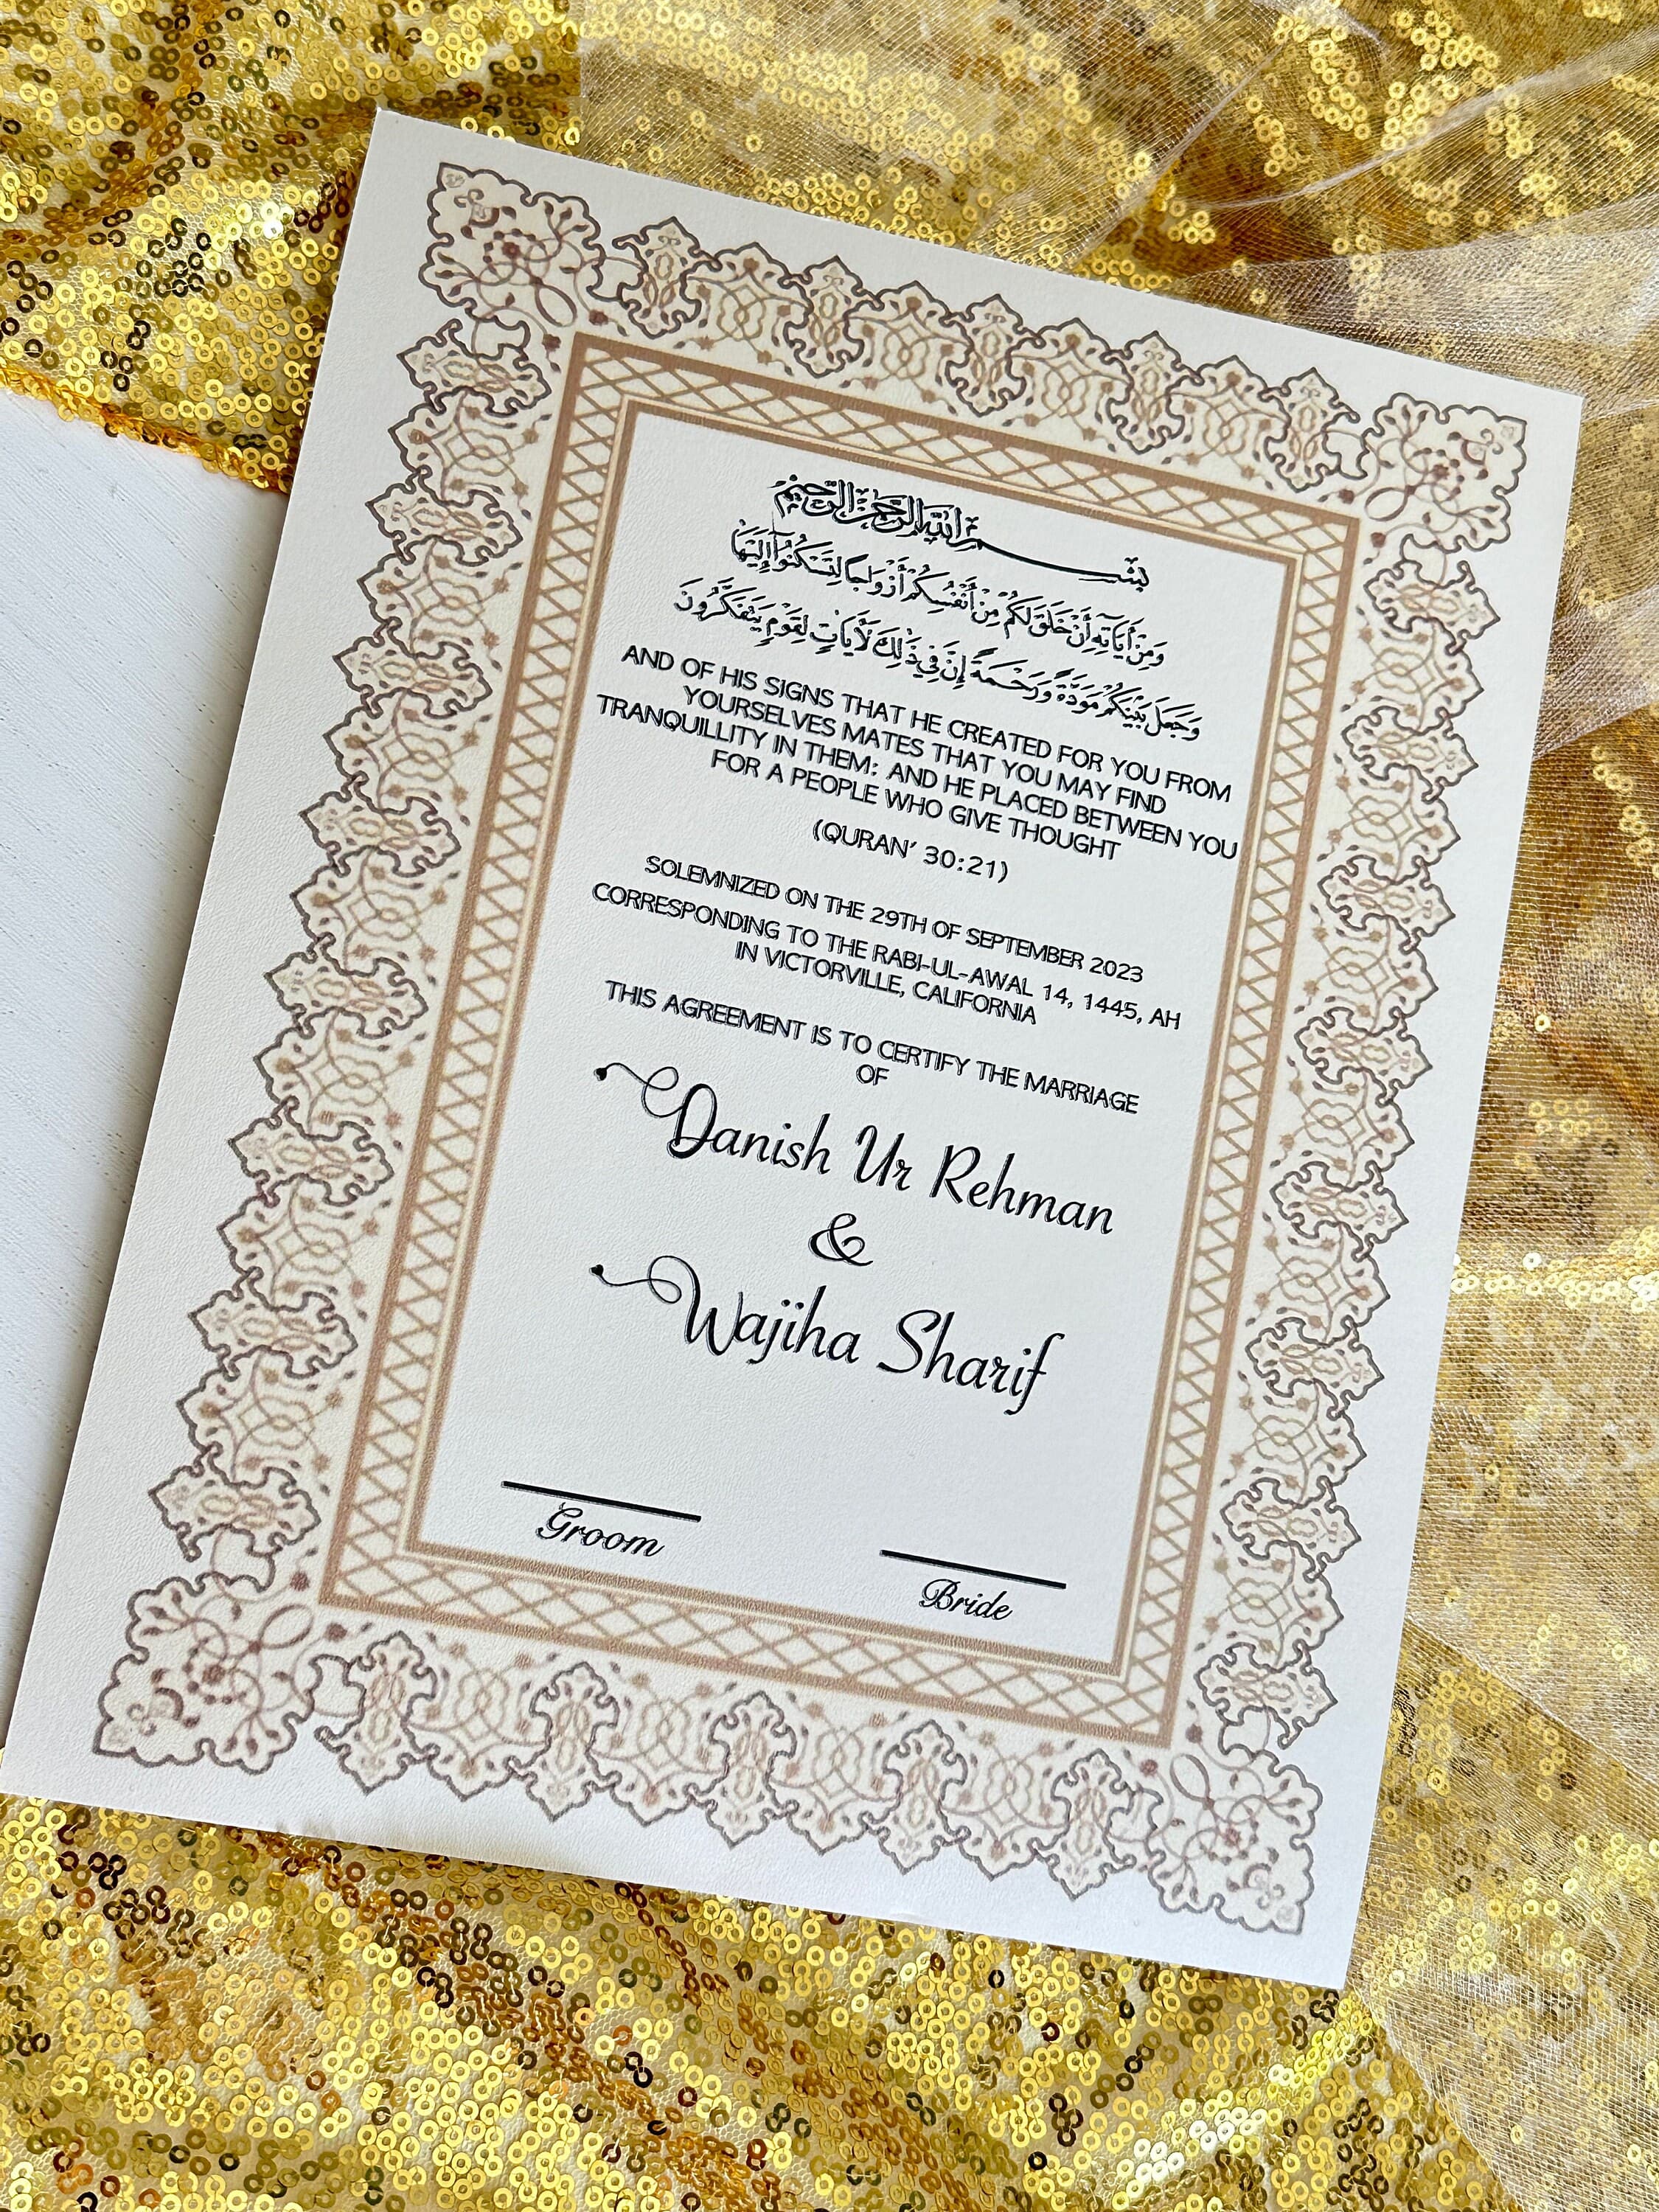 بسم الله الرحمن الرحيم
وَمِنْ آيَاتِهِ أَنْ خَلَقَ لَكُمْ مِنْ أَنْفُسِكُمْ أَزْوَاجًا لِتَسْكُنُوا إِلَيْهَا
وَجَعَلَ بَيْنَكُمْ مَوَدَّةً وَرَحْمَةً إِنَّ فِي ذَٰلِكَ لَآيَاتٍ لِقَوْمٍ يَتَفَكَّرُونَ
AND OF HIS SIGNS THAT HE CREATED FOR YOU FROM
YOURSELVES MATES THAT YOU MAY FIND
TRANQUILLITY IN THEM: AND HE PLACED BETWEEN YOU
FOR A PEOPLE WHO GIVE THOUGHT
(QURAN' 30:21)
SOLEMNIZED ON THE 29TH OF SEPTEMBER 2023
CORRESPONDING TO THE RABI-UL-AWAL 14, 1445, AH
IN VICTORVILLE, CALIFORNIA
THIS AGREEMENT IS TO CERTIFY THE MARRIAGE
OF
Danish Ur Rehman
&
Wajiha Sharif
Groom
Bride